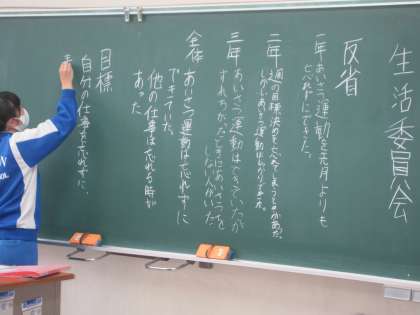 生活委員会
反省
一年 あいさつ運動を先月よりも
忘れずにできた。
二年 週の目標決めを忘れてしまうことがあった。
しかしあいさつ運動はしっかりできた。
三年 あいさつ運動はできていたが
すれちがったときにあいさつを
しない人がいた。
全体 あいさつ運動は忘れずに
できていた。
他の仕事は忘れる時が
あった
目標
自分の仕事を忘れずに、